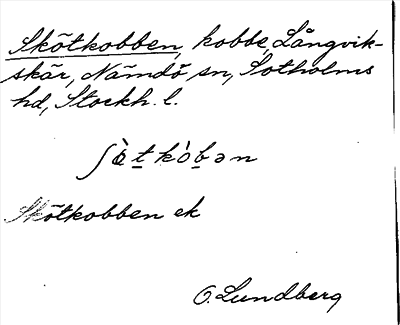 Skötkobben, kobbe, Långvik-
skär, Nämdö sn, Sotholms
hd, Stockh. l.
ʃö̀tkòbən
Skötkobben ek
O. Lundberg